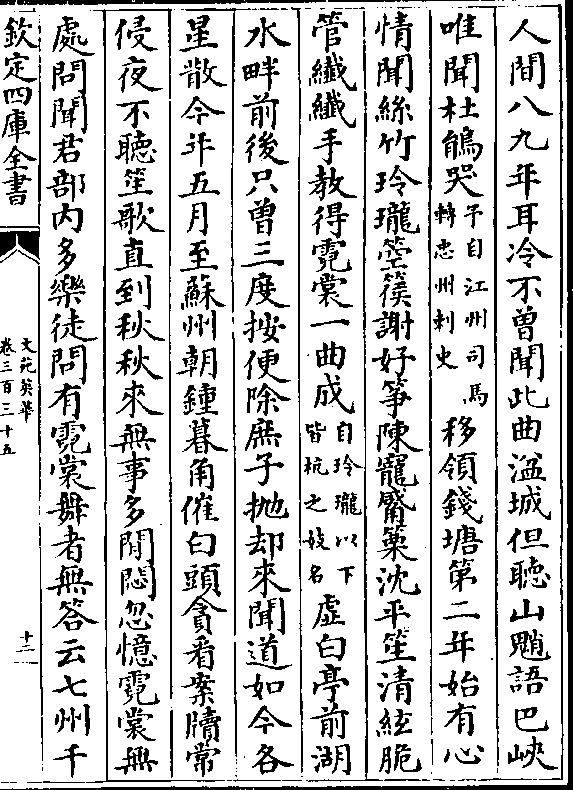 人間八九年耳冷不曾聞此曲湓城但聽山魈語巴峽
唯聞杜鵑哭予自江州司馬轉忠州刺史移領錢塘第二年始有心
情聞絲竹玲瓏箜篌謝好箏陳寵觱篥沈平笙清絃脆
管纖纖手教得霓裳一曲成自玲瓏以下皆杭之妓名虛白亭前湖
水畔前後只曾三度按便除庶子抛却來聞道如今各
星散今年五月至蘇州朝鐘暮角催白頭貪看案牘常
侵夜不聽笙歌直到秋秋來無事多閒悶忽憶霓裳無
處問聞君部内多樂徒問有霓裳舞者無答云七州千
欽定四庫全書
文苑英華
卷三百三十五
十三